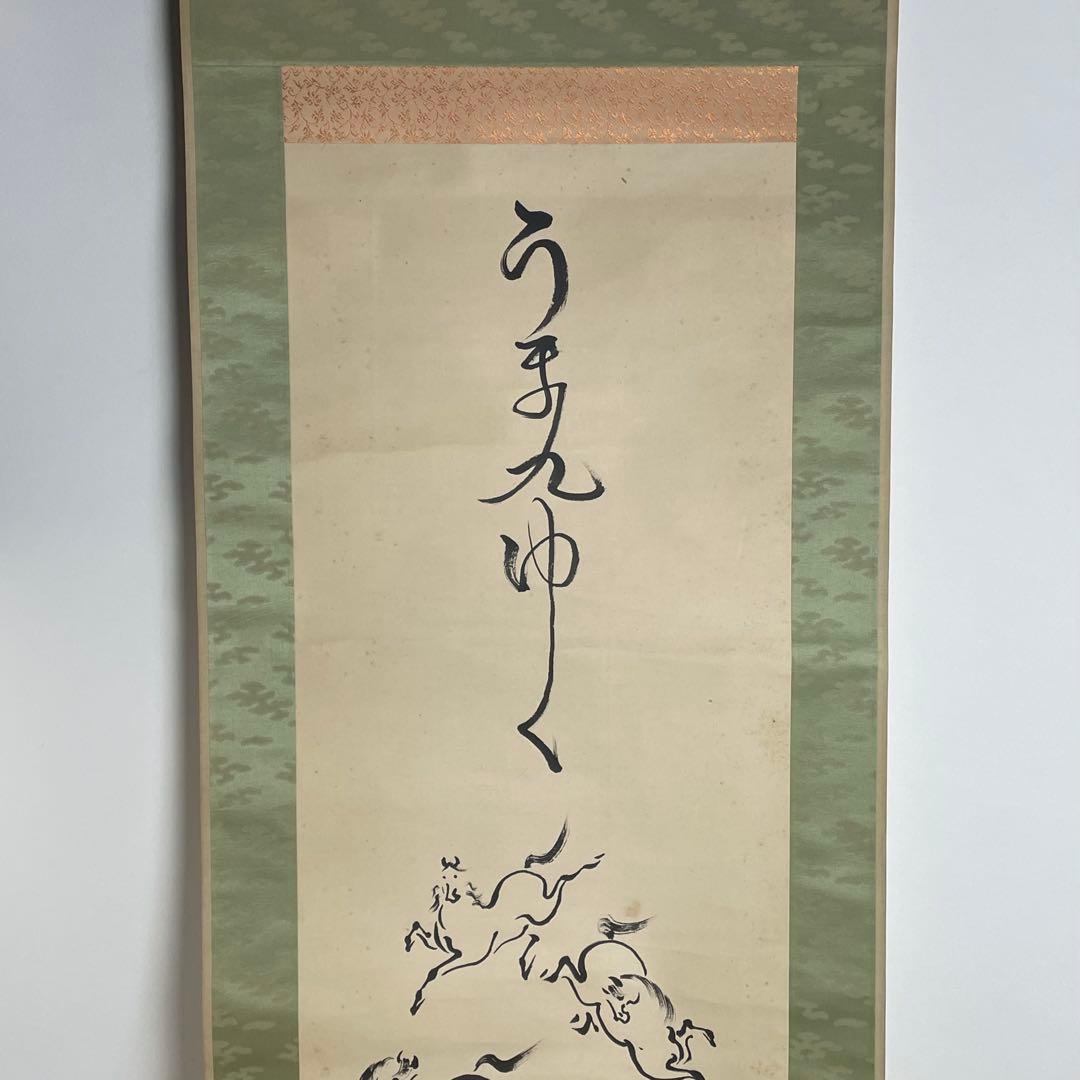 うま九ゆく